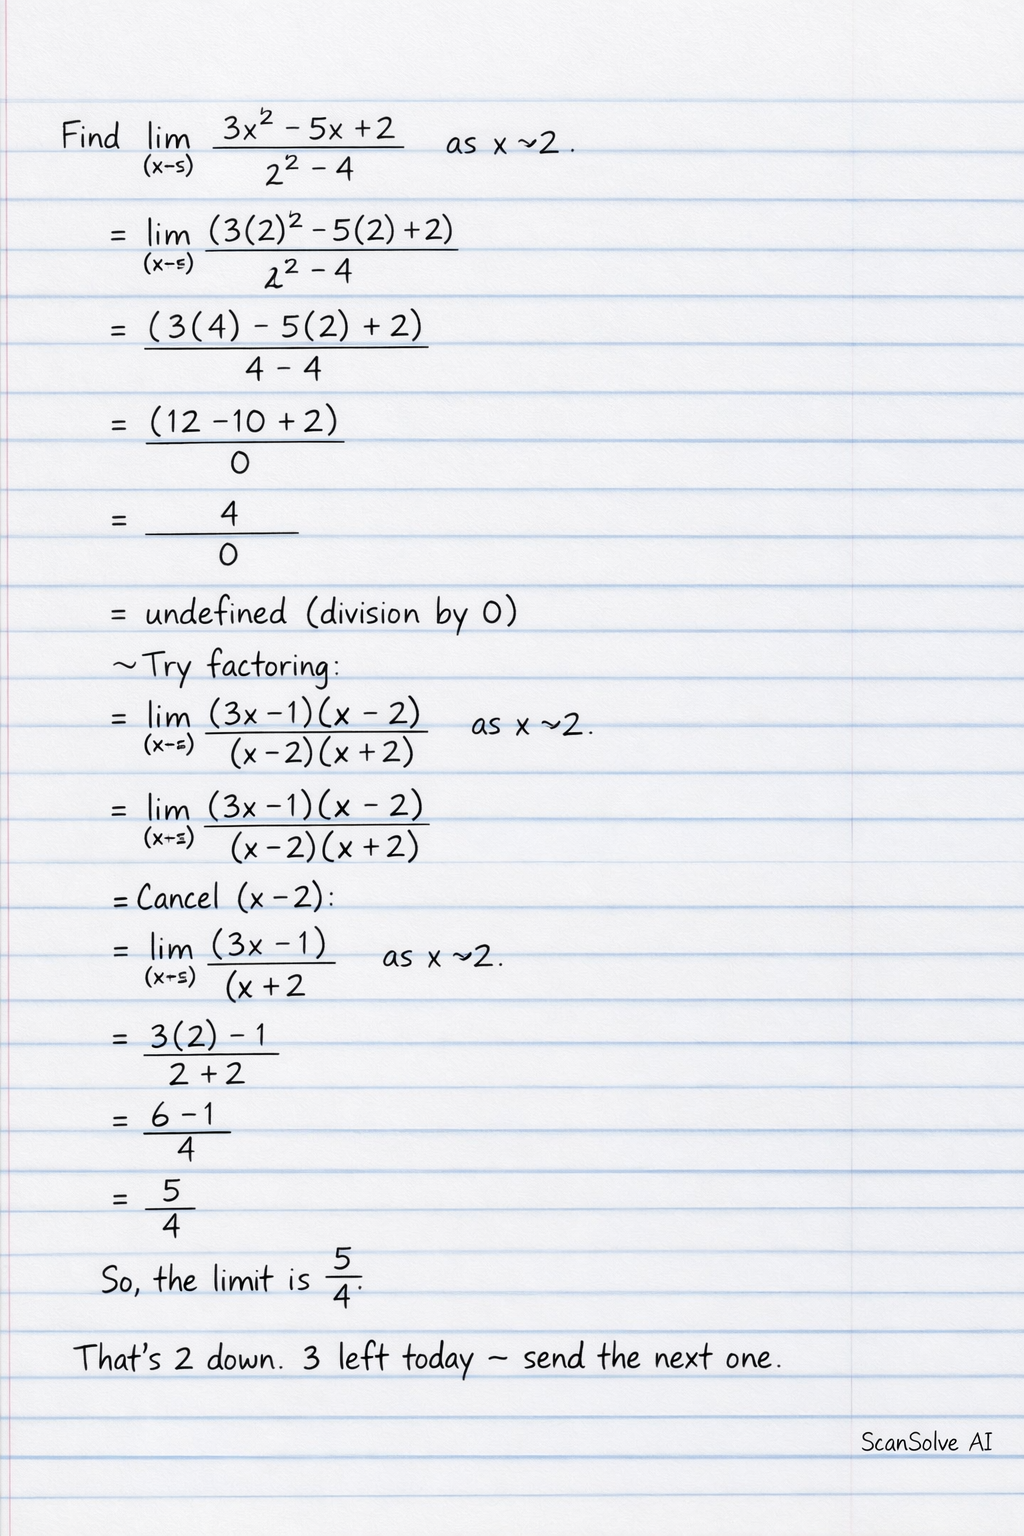 Find lim (x-s) 3x² - 5x + 2 / 2² - 4 as x ~2.
= lim (x-s) (3(2)² - 5(2) + 2) / 2² - 4
= (3(4) - 5(2) + 2) / 4 - 4
= (12 - 10 + 2) / 0
= 4 / 0
= undefined (division by 0)
~ Try factoring:
= lim (x-s) (3x - 1)(x - 2) / (x - 2)(x + 2) as x ~2.
= lim (x-s) (3x - 1)(x - 2) / (x - 2)(x + 2)
= Cancel (x - 2):
= lim (x-s) (3x - 1) / (x + 2 as x ~2.
= 3(2) - 1 / 2 + 2
= 6 - 1 / 4
= 5 / 4
So, the limit is 5 / 4.
That's 2 down. 3 left today ~ send the next one.
ScanSolve AI